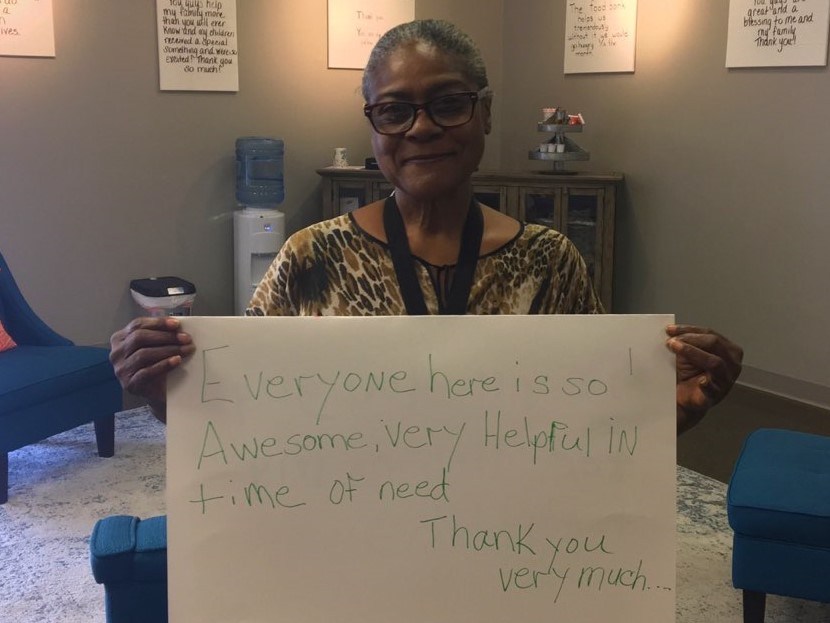 a
ives.
You guys help
my family more
than you will ever
know and my children
received a special
something and were so
excited! Thank you
so much!
Thank you
The Food bank
helps us
tremendously
without it we would
go hungry
month
great and a
blessing to me and
my family
Thank you!
Everyone here is so !
Awesome, very Helpful in
time of need
Thank you
very much....